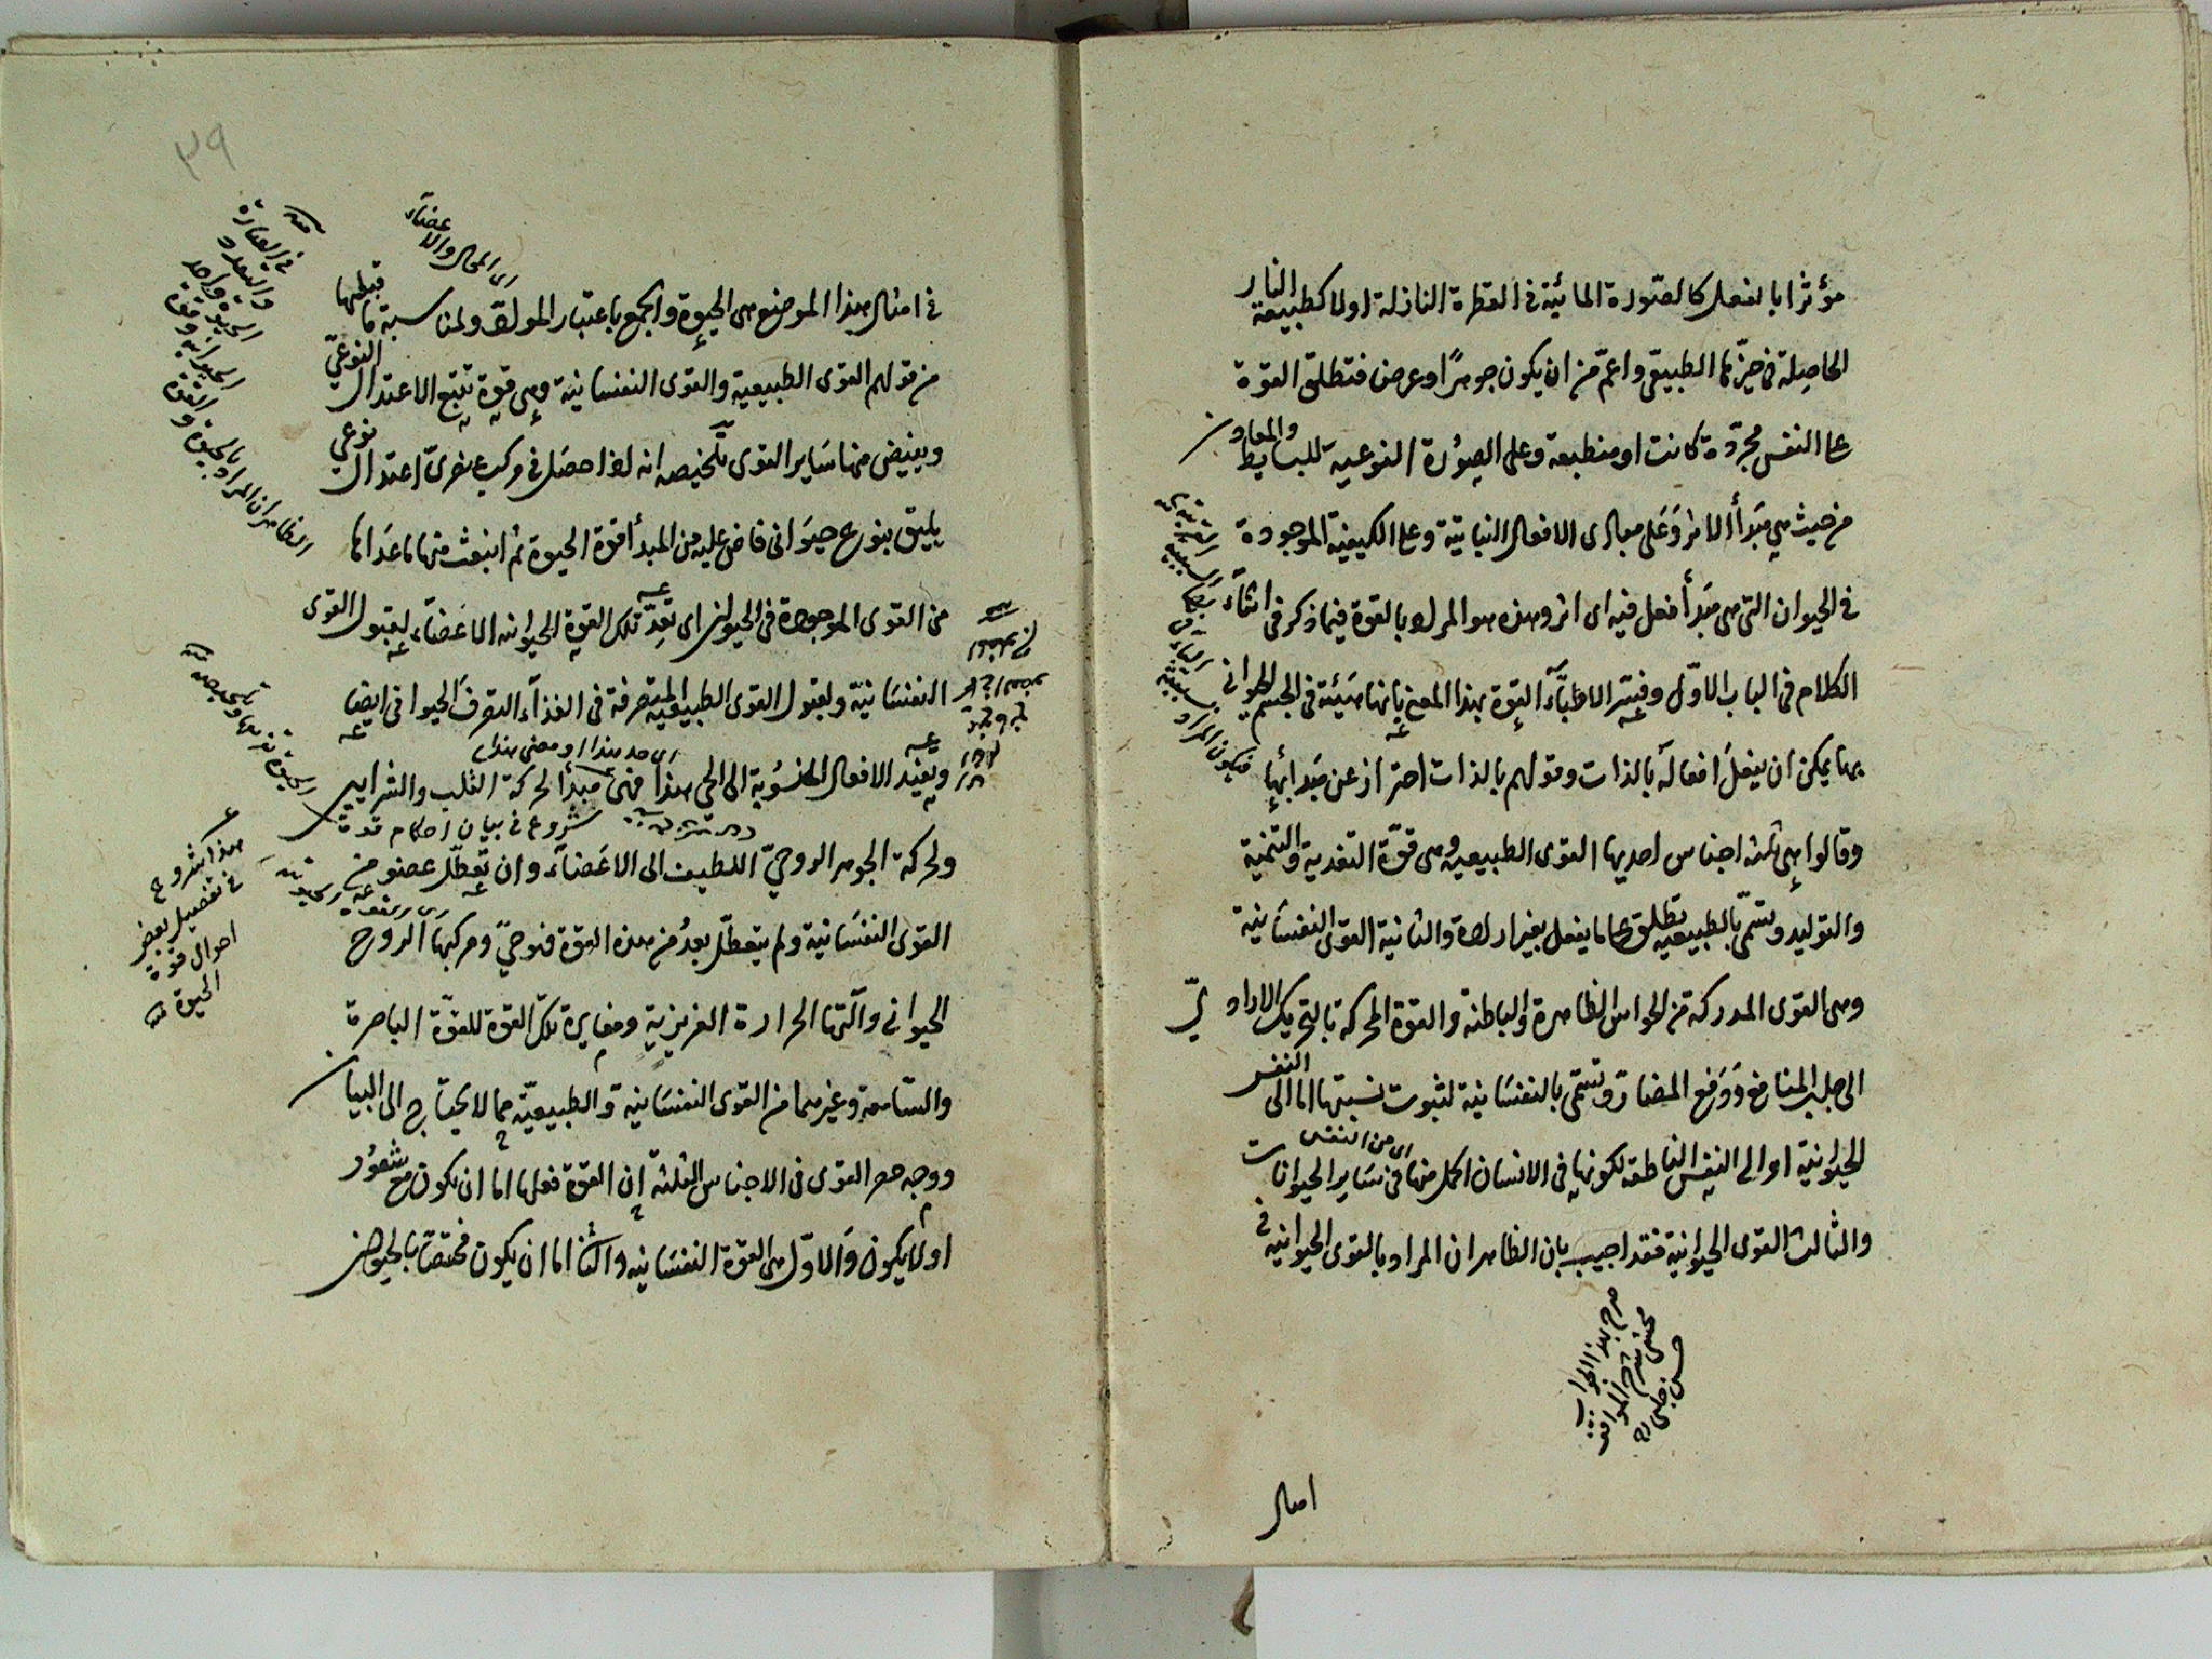 مؤثرا بالفعل كالصورة المائية في القطرة النازلة اولا كطبيعة النار
الحاصلة في حيزها الطبيعي واعم من ان يكون جوهرا او عرض فتطلق القوة
على النفس مجردة كانت او منطبعة وعلى الصورة النوعية للبسايط والمعادن
من حيث هي مبدأ الاثر وعلى مبادى الافعال النباتية وعلى الكيفية الموجودة
في الحيوان التى هى مبدأ فعل فيه اى اثر وهذه هو المراد بالقوة فيما ذكر في اثناء
الكلام في الباب الاول وفسر الاطباء القوة بهذا المعنى بانها هيئة في الجسم الحيواني
بها يمكن ان يفعل افعاله بالذات وقولهم بالذات احتراز عن مبدائها
وقالوا هى ثلثه اجناس احديها القوى الطبيعية وهى قوة التغدية والتنمية
والتوليد وتسمى بالطبيعيه تطلق على ما يفعل بغير ارادة والثانية القوى النفسانية
وهى القوى المدركة من الحواس الظاهرة والباطنة والقوة المحركة بالتحريك الارادي
الى جلب المنافع ودفع المضار وتسمى بالنفسانية لثبوت نسبتها اما الى النفس
الحيوانية او الى النفس الناطقه لكونها في الانسان اكمل منها في ساير الحيوانات
اى من النفس
والثالث القوى الحيوانية فقد اجيب بان الظاهر ان المراد بالقوى الحيوانية في
صرح بهذا الجواب
محشى شرح المواقف
حسن چلبى
امثال
٣٩
اى المحال والاعضاء
في امثال هذا الموضع هى الحيوة والجمع باعتبار المواد ولمناسبة ما قبلها
من قولهم القوى الطبيعية والقوى النفسانية وهى قوة تتبع الاعتدال النوعي
ويفيض منها ساير القوى تلخيصه انه اذا حصل في مركب عنصرى اعتدال نوعي
يليق بنوع حيوانى فاض عليه من المبدأ قوة الحيوة ثم انبعث منها ما عداها
من القوى الموجودة في الحيوان اى تعد تلك القوة الحيوانيه الاعضاء لقبول القوى
النفسانية ولقبول القوى الطبيعية المتصرفة في الغذاء التصرف الحيوانى ايضا
اى خذ هذا او معنى هذا
ويفيد الافعال المنسوبة الى الحى هذا فهى مبدأ لحركة القلب والشرايين
شروع في بيان احكام قوة
ولحركة الجوهر الروحي اللطيف الى الاعضاء وان تعطل عضو من
القوى النفسانية ولم يتعطل بعد من هذه القوة فهو حي ومركبها الروح
الحيوانى وآلتها الحرارة الغريزية ومغايرة تلك القوة للقوة الباصرة
والسامعة وغيرهما من القوى النفسانية والطبيعية مما لا يحتاج الى البيان
ووجه حصر القوى في الاجناس الثلثة ان القوة فعلها اما ان يكون مع شعور
اولا يكون والاول هى القوة النفسانيه والثانى اما ان يكون مختصا بالحيوان
هذا شروع
في تفصيل بعض
احوال قوة
الحيوة